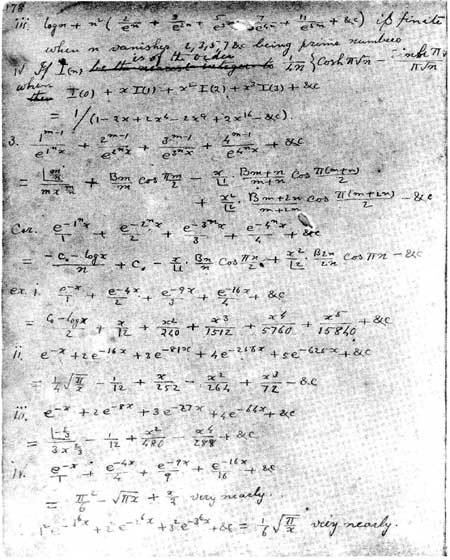 178
iii. log n + n² ( 2/e^n + 3/e^3n + 5/e^5n + 7/e^7n + 11/e^11n + &c ) is finite
when n vanishes 2, 3, 5, 7 &c being prime numbers
iv If I(n) is of the order 1/4n { Cosh π√n −
when I(0) + x I(1) + x² I(2) + x³ I(3) + &c
= 1/(1−2x+2x⁴−2x⁹+2x¹⁶−&c).
3. 1^{m−1}/e^{1^n x} + 2^{m−1}/e^{2^n x} + 3^{m−1}/e^{3^n x} + 4^{m−1}/e^{4^n x} + &c
= + Bm/m cos πm/2 − x/|1 · B m+n/m+n cos π(m+n)/2
+ x²/|2 · B m+2n/m+2n cos π(m+2n)/2 − &c
Cor. e^{−1^n x}/1 + e^{−2^n x}/2 + e^{−3^n x}/3 + e^{−4^n x}/4 + &c
= −C₀−log x/n + C₀ − x/|1 · Bn/n cos πn/2 + x²/|2 · B2n/2n cos πn − &c
ex. i. e^{−x}/1 + e^{−4x}/2 + e^{−9x}/3 + e^{−16x}/4 + &c
= C₀−log x/2 + x/12 + x²/240 + x³/1512 + x⁴/5760 + x⁵/15840 + &c
ii. e^{−x} + 2e^{−16x} + 3e^{−81x} + 4e^{−256x} + 5e^{−625x} + &c
= 1/4 √(π/x) − 1/12 + x/252 − x²/264 + x³/72 − &c
iii. e^{−x} + 2e^{−8x} + 3e^{−27x} + 4e^{−64x} + &c
= − 1/12 + x²/480 − x⁴/288 + &c
iv. e^{−x}/1 + e^{−4x}/4 + e^{−9x}/9 + e^{−16x}/16 + &c
= π²/6 − √πx + x/2 very nearly.
+ &c = 1/6 √(π/x) very nearly.